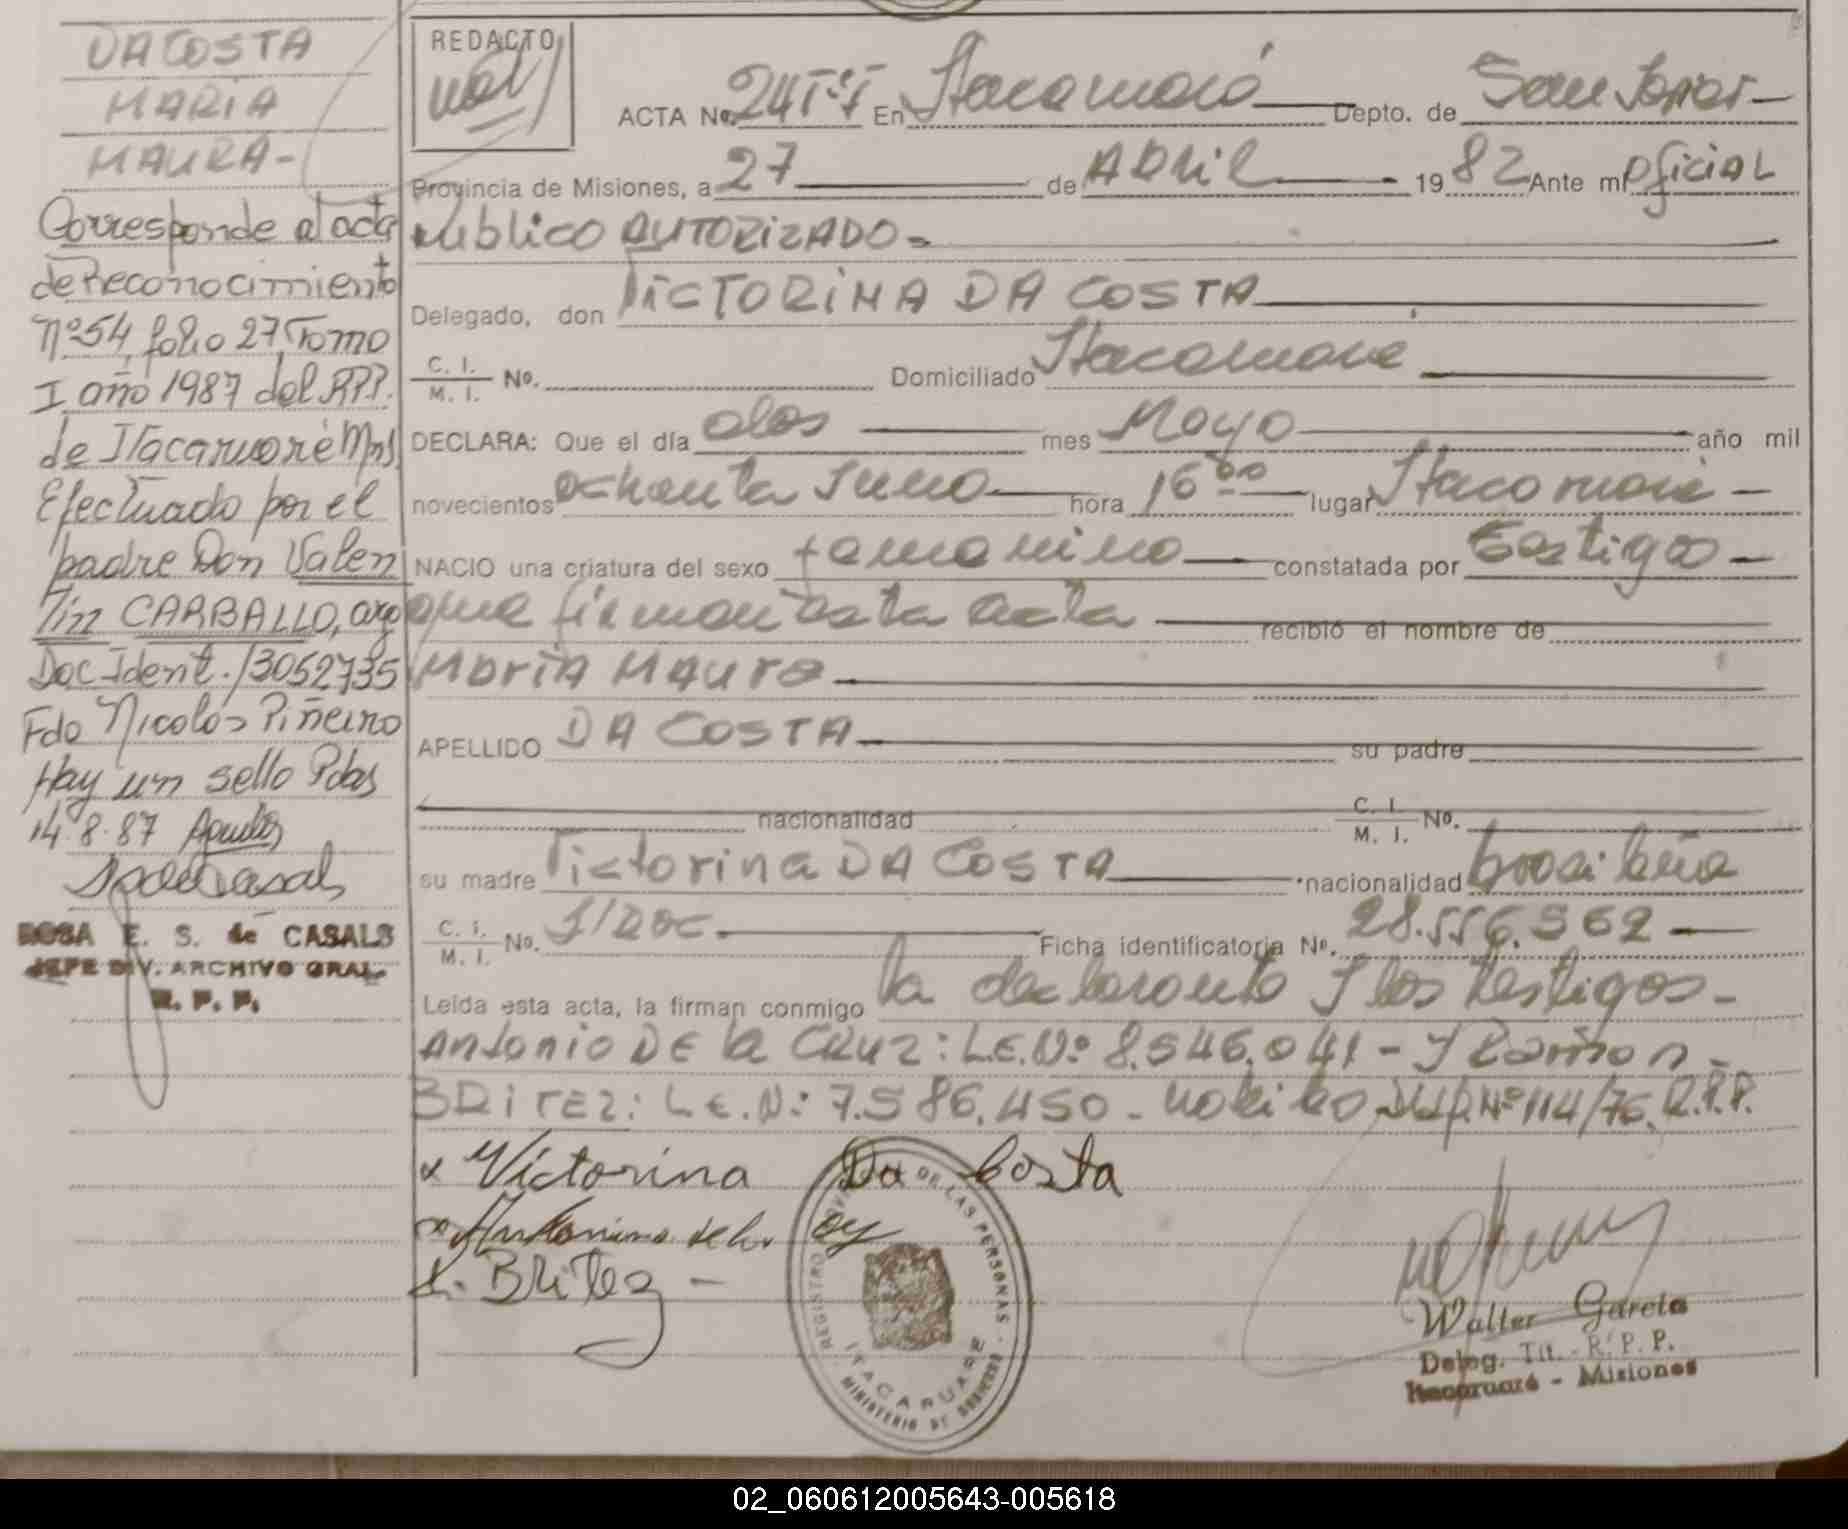 DA COSTA
MARIA
MAURA-
Corresponde al acta
de Reconocimiento
Nº 54, folio 27 Tomo
I año 1987 del RPP.
de Itacaruaré Mns
Efectuado por el
padre Don Valen
tin CARBALLO, arg
Doc Ident. 13052735
Fdo Nicolás Piñeiro
Hay un sello Pdas
14.8.87
ROSA E. S. de CASALS
JEFE DIV. ARCHIVO GRAL.
R. P. P.
REDACTO
ACTA No. 24 En Itacaruaré Depto. de San Javier-
Provincia de Misiones, a 27 de ABRIL 1982 Ante mi Oficial
Publico AUTORIZADO-
Delegado, don VICTORINA DA COSTA
C. I. M. I. No. Domiciliado Itacaruare
DECLARA: Que el día dos mes Mayo año mil
novecientos ochenta Iuno hora 16 00 lugar Itacaruaré -
NACIO una criatura del sexo femenino constatada por Testigos -
que firman esta acta recibió el nombre de
MARIA MAURA
APELLIDO DA COSTA su padre
nacionalidad C. I. M. I. No.
su madre Victorina DA COSTA nacionalidad brasileña
C. I. M. I. No. S/DOC. Ficha identificatoria No. 28.556.962
Leída esta acta, la firman conmigo la declarante I los testigos-
Antonio DE la CRUZ: L.E.Nº 8.546.041 - I Ramon -
BRITEZ: L.E.N: 7.586.450 - Disp. Nº 114/76. R.P.P.
x Victorina Da Costa
Britez -
REGISTRO PROV. DE LAS PERSONAS
ITACARUARE
MINISTERIO DE GOBIERNO
Walter Garcia
Deleg. Tit. - R. P. P.
Itacaruaré - Misiones
02_060612005643-005618